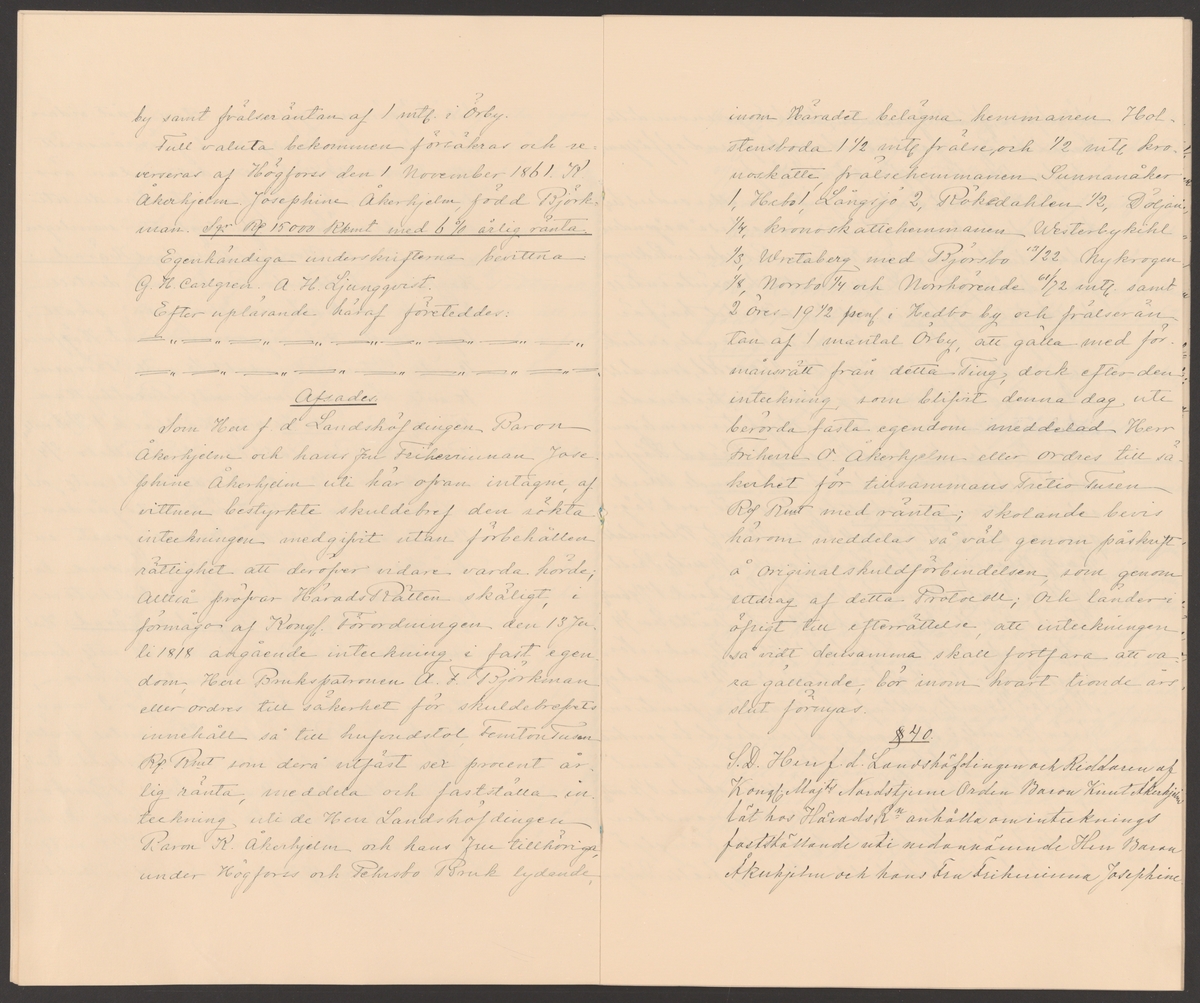 by samt frälseräntan af 1 mtl. i Örby.
Full valuta bekommen försäkras och re-
verseras af Högfors den 1 November 1861. K
Åkerhjelm. Josephine Åkerhjelm, född Björk-
man. Spr Rdr 15000 Rkmt med 6 % årlig ränta.
Egenhändiga underskrifterna bevittna
G. H. Carlgren. A H. Ljungqvist.
Efter uplåsande häraf företeddes:
Afsades.
Som Herr f d Landshöfdingen Baron
Åkerhjelm och hans Fru Friherrinnan Jose-
phine Åkerhjelm uti här ofvan intagne, af
vittnen bestyrkte skuldebref den sökta
inteckningen medgifvit utan förbehållen
rättighet att deröfver vidare varda hörde;
Alltså pröfvar HäradsRätten skäligt, i
förmågo af Kongl. Förordningen den 13 Ju-
li 1818 angående inteckning i fast egen-
dom, Herr Brukspatronen A. F. Björkman
eller ordres till säkerhet för skuldebrefvets
innehåll så till hufvudstol, FemtonTusen
Rdr Rmt som derå utfäst sex procent år-
lig ränta, meddela och fastställa in-
teckning uti de Herr Landshöfdingen
Baron K. Åkerhjelm och hans Fru tillhöriga,
under Högfors och Pehrsbo Bruk lydande,
inom Häradet belägna hemmanen Hol-
stensboda 1 1/2 mtl frälse, och 1/2 mtl kro-
noskatte, frälsehemmanen Sunnanåker
1, Hebo 1, Långsjö 2, Rökedahlen 1/2, Döljan
1/4, kronoskattehemmanen Westerbykihl
1/3, Wretaberg med Björsbo 17/22 Nykrogen
1/8, Norrbo 1/4 och Norrhörende 61/72 mtl samt
2 öres 19 1/2 penl i Hedbo by och frälserän-
tan af 1 mantal Örby, att gälla med för-
månsrätt från detta Ting, dock efter den
inteckning som blifvit denna dag uti
berörda fasta egendom meddelad Herr
Friherre O Åkerhjelm eller ordres till sä-
kerhet för tillsammans Tretio Tusen
Rdr Rmt med ränta; skolande bevis
härom meddelas så väl genom påskrift
å originalskuldförbindelsen som genom
utdrag af detta Protocoll; Och länder i
öfrigt till efterrättelse, att inteckningen
så vidt densamma skall fortfara att va-
ra gällande, bör inom hvart tionde års
slut förnyas.
§ 40.
S. D. Herr f. d. Landshöfdingen och Riddaren af
Kongl Majts Nordstjerne Orden Baron Knut Åkerhjelm
lät hos Härads Rn anhålla om inteckning
fastställande uti nedannämnde Herr Baron
Åkerhjelm och hans Fru Friherrinna Josephine